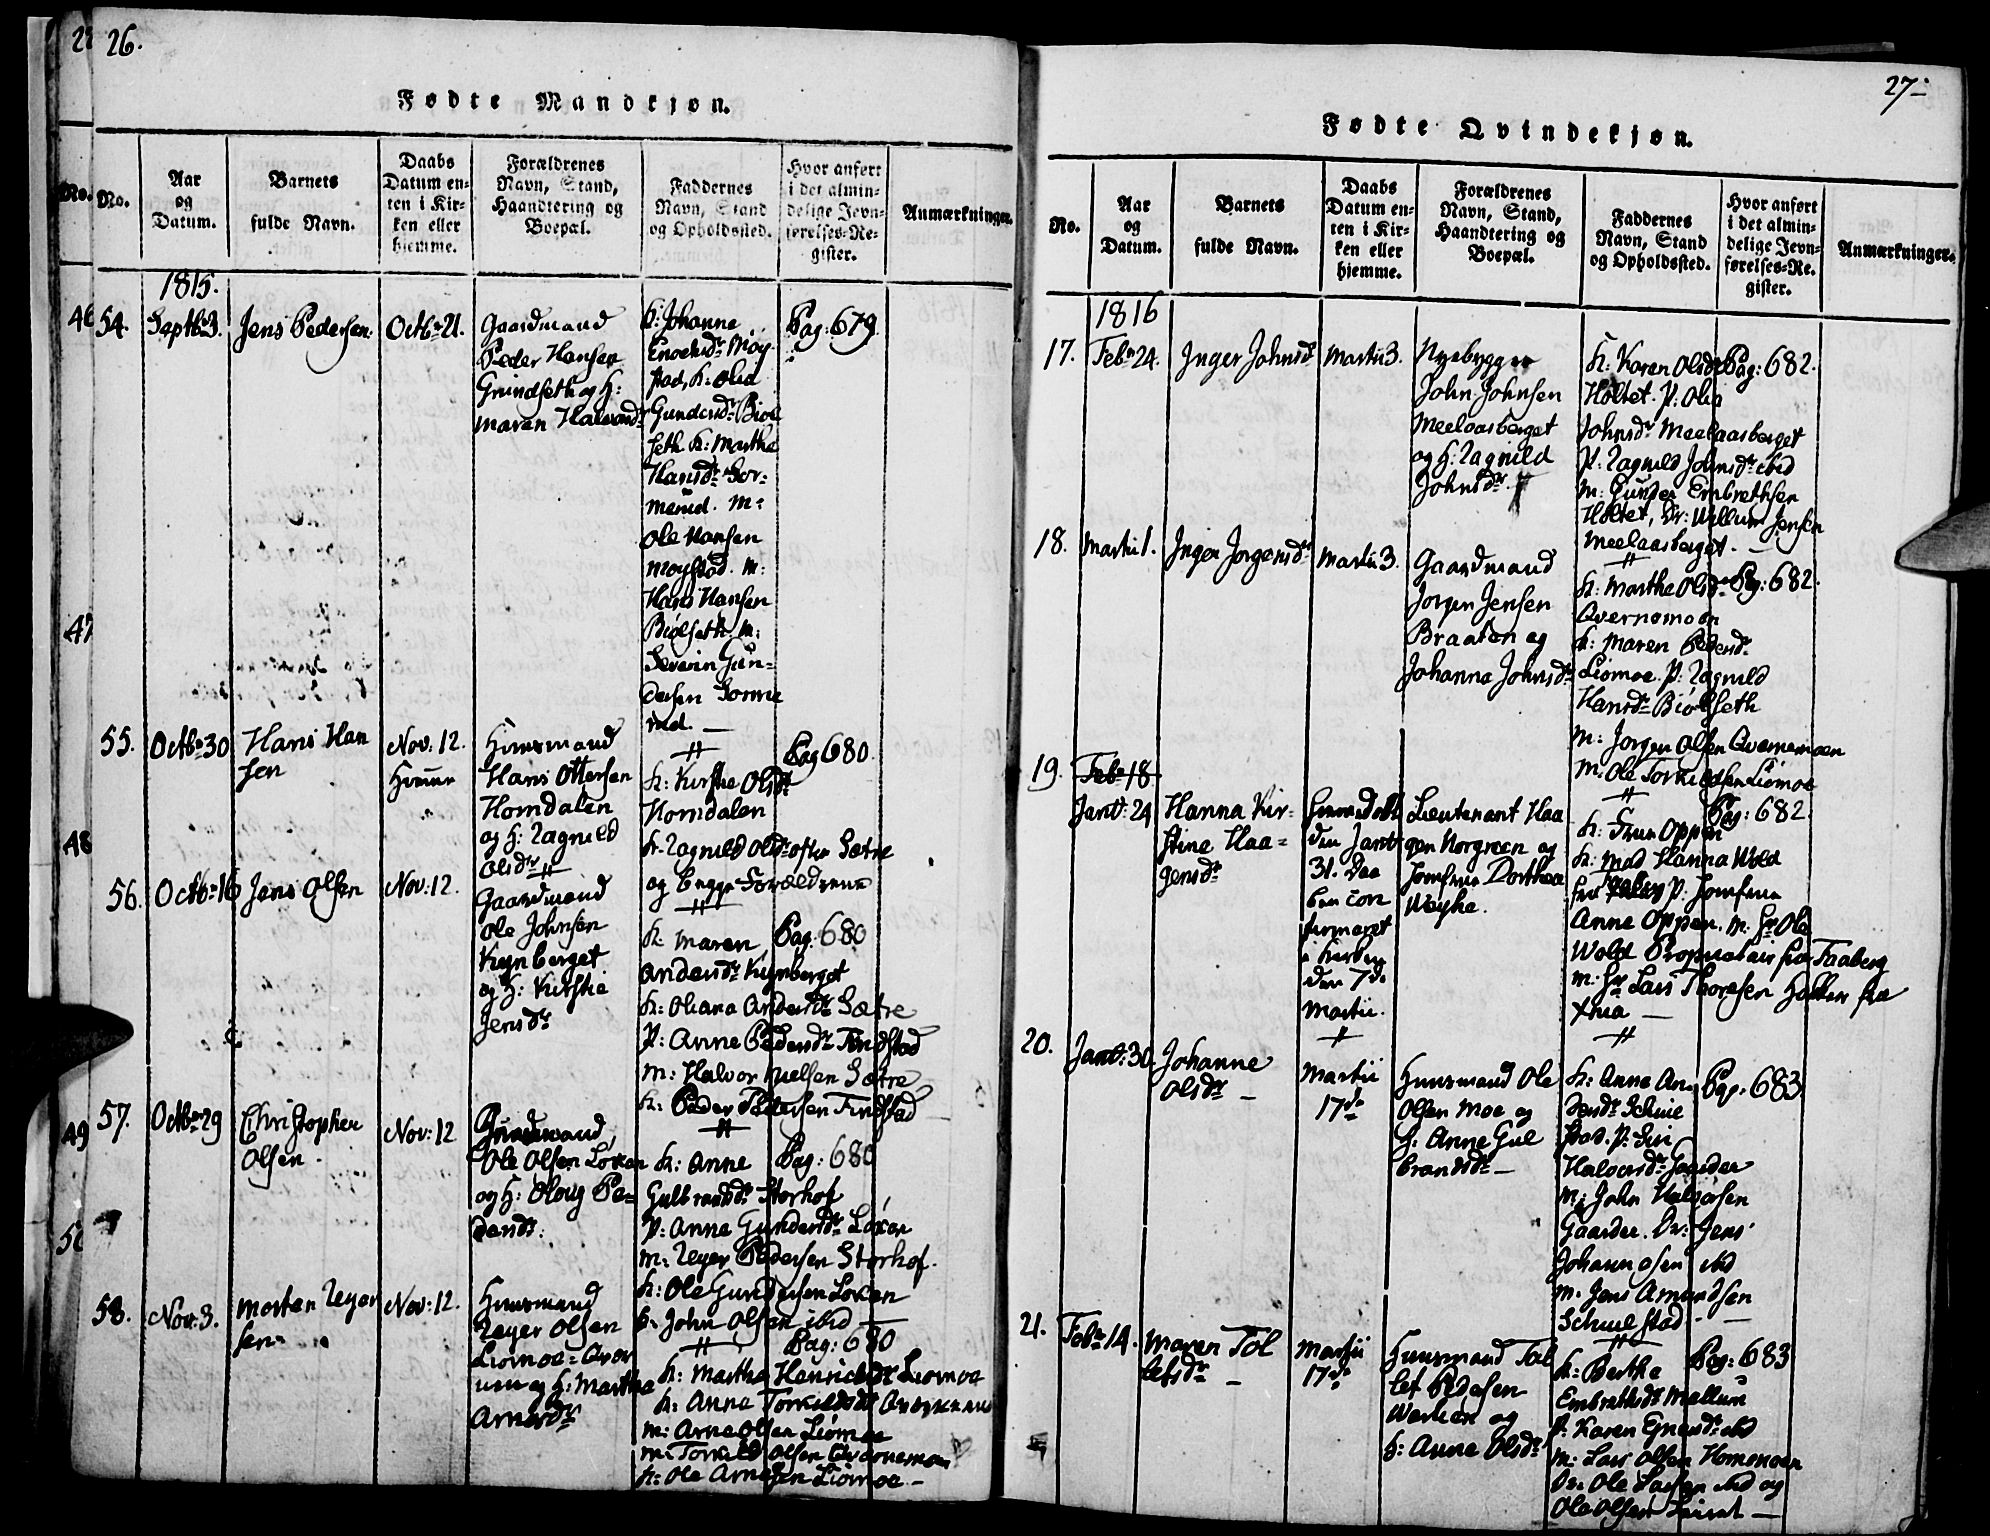 26.
Fødte Mandkjøn.
No.
Aar
og
Datum.
Barnets
fulde Navn.
Daabs
Datum en-
ten i Kir-
ken eller
hjemme.
Forældrenes
Navn, Stand,
Haandtering og
Boepæl.
Faddernes
Navn, Stand
og Opholdssted.
Hvor anført
i det almin-
delige Jevn-
førelses-Re-
gister.
Anmærkninger.
1815.
54.
Septbr 3.
Jens Pedersen
Octbr 21.
Gaardmand
Peder Hansen
Grindseth og H:
Maren Halvorsdr
K: Johanne
Enochsdr Møy
stad, K: Olia
Gundersdr Biøl
seth K: Marthe
Hansdr Gor-
merud. M:
Ole Hansen
Moystad. M:
Hans Hansen
Biølseth. M:
Severin Gun-
dersen Gorme
rud. —
Pag: 679.
55.
Octbr 30
Hans Han
sen
Nov: 12.
Huusmand
Hans Ottersen
Horndalen
og H: Ragnild
Olsdr
K: Kirstie Olsdr
Horndalen
K. Ragnild Olsdr Sætre
og begge Forældrene
Pag 680.
56.
Octbr 16
Jens Olsen
Nov: 12.
Gaardmand
Ole Johnsen
Kynberget
og H: Kirstie
Jensdr
K. Maren
Andersdr Kynberget
K: Oleana Andersdr Sætre
P: Anne Pedersdr Findstad
M: Halvor Nielsen Sætre
K: Peder Pedersen Findstad
Pag: 680
57.
Octbr 29
Christopher
Olsen.
Nov: 12
Gaardmand
Ole Olsen Løken
og H: Oloug Pe-
dersdr.
K: Anne
Gulbrandsdr Storhof
P: Anne Gundersdr Løken
M: Reyer Pedersen Storhof.
K: Ole Gundersen Løken
John Olsen ibid
Pag: 680
58.
Nov: 3.
Morten Reyer
sen
Nov: 12.
Huusmand
Reyer Olsen
Liømoe
og H: Marthe
Arnesdr
K: Marthe Henrichsdr Liømoe
K: Anne Torkildsdr
M: Arne Olsen Liømoe
M: Torkild Olsen Qvernemoen
K: Ole Arnesen Liømoe —
Pag: 680
27
Fødte Qvindekjøn.
No.
Aar
og
Datum.
Barnets
fulde Navn.
Daabs
Datum en-
ten i Kir-
ken eller
hjemme.
Forældrenes
Navn, Stand,
Haandtering og
Boepæl.
Faddernes
Navn, Stand
og Opholdssted.
Hvor anført
i det almin-
delige Jevn-
førelses-Re-
gister.
Anmærkninger.
1816
17.
Febr 24.
Inger Johnsdr
Martii 3.
Nyebygger
John Johnsen
Meelaasberget
og H: Ragnild
Johnsdr
K: Karen Olsdr
Holtet. P: Olia
Johnsdr Meelaasberget
P: Ragnild Johnsdr ibid
M: Gunder Embrethsen
Holtet, Dr: Willum Jensen
Meelaasberget. —
Pag: 682.
18.
Martii 1.
Inger Jorgensdr
Martii 3.
Gaardmand
Jorgen Jensen
Braaten og
Johanna Johnsdr
K: Marthe Olsdr
Qvernemoen
K: Maren Pedersdr
Liømoe. P: Ragnild
Hansdr Biølseth
M: Jorgen Olsen Qvernemoen
M: Ole Torkildsen Liømoe
Pag: 682.
19.
Febr 18
Janv: 24
Hanna Kir-
stine Haa-
gensdr
Hjemmedøbt
den Janv:
31. Daa
ben con
firmeret
i Kirken
den 7de
Martii.
Lieutenant Haa
gen Norgreen og
Jomfrue Dorthea
Weyhe.
K: Frue Oppen
K: Mad Hanna Wold
P. Jomfrue
Anne Oppen. M: Hr Ole
Wold Proprietair fra Faaberg
M: Hr Lars Thoresen Holter fra
Xnia —
Pag: 682.
20.
Janv: 30
Johanne
Olsdr —
Martii
17de
Huusmand Ole
Olsen Moe og
H: Anne Gul
brandsdr —
K: Anne An-
dersdr Schiie
stad. P: Siri
Halvorsdr Gaarder
M: John Halvorsen
Gaarder. Dr: Jens
Johannesen ibid
M. Jens Amundsen
Schiiestad. —
Pag: 683
21.
Febr 14.
Maren Tol
lefsdr —
Martii
17de
Huusmand Tol
lef Pedersen
og
H: Anne Olsdr
K: Berthe
Embrethsdr Mellum
P. Karen Ejnersdr ibid
M: Lars Olsen Hommoen
Dr: Ole Larsen ibid og
Ole Olsen —
Pag: 683